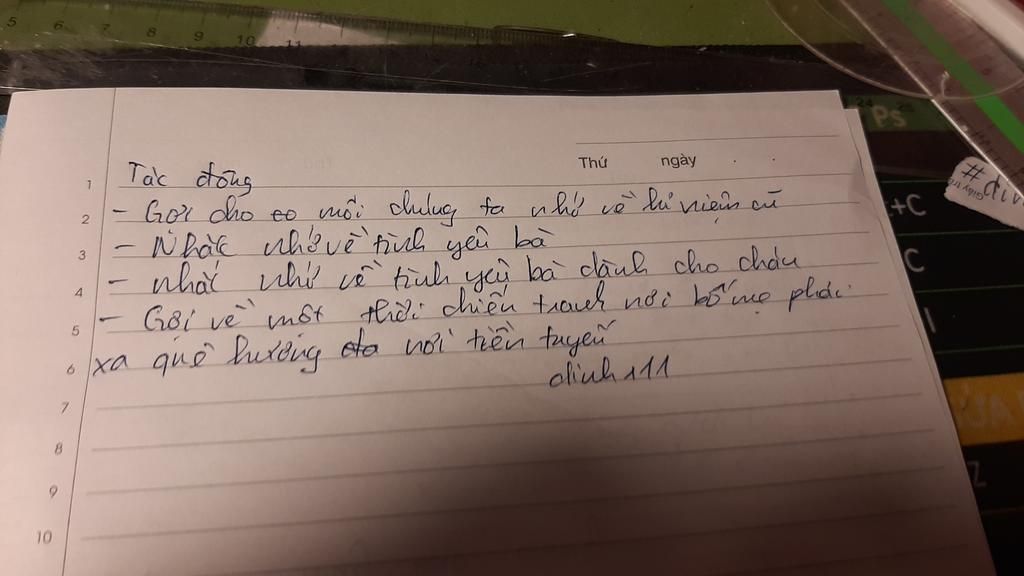 5 6 7 8 9 10 11
Ps
Thứ ngày . .
1 Tác động
2 - Gợi cho mỗi chúng ta nhớ về kỉ niệm cũ
3 - Nhắc nhớ về tình yêu bà
4 - nhắc nhớ về tình yêu bà dành cho cháu
5 - Gợi về một thời chiến tranh nơi bố mẹ phải
6 xa quê hương nơi tiền tuyến
dinh111
7
8
9
10
#div
+C
C
Z